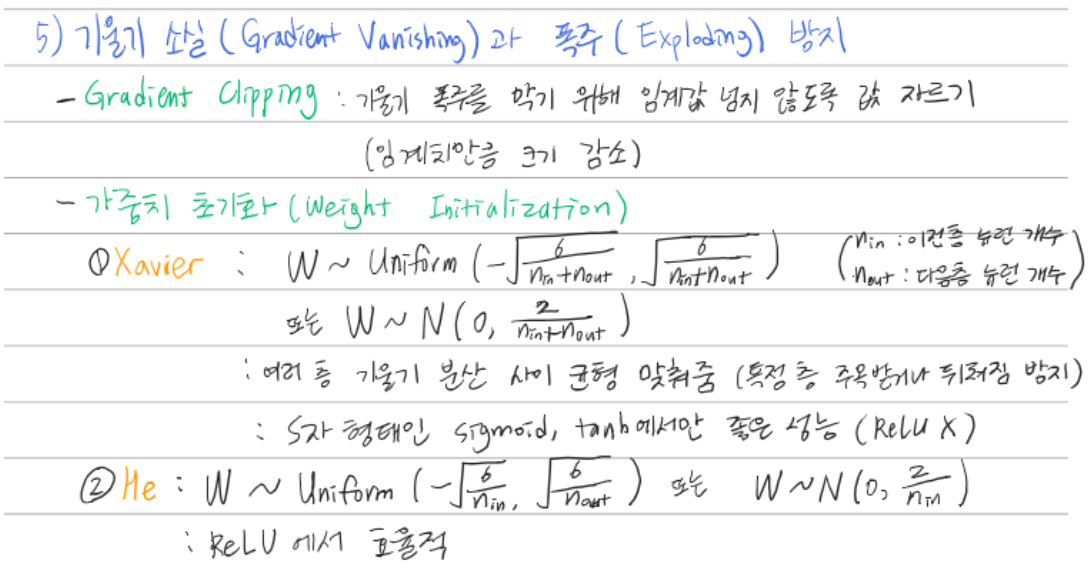 5) 기울기 소실 (Gradient Vanishing) 과 폭주 (Exploding) 방지
- Gradient Clipping : 기울기 폭주를 막기 위해 임계값 넘지 않도록 값 자르기
(임계치만큼 크기 감소)
- 가중치 초기화 (Weight Initialization)
① Xavier : W ~ Uniform (-√(6/(n_in+n_out)), √(6/(n_in+n_out))) (n_in : 이전층 뉴런 개수
n_out : 다음층 뉴런 개수)
또는 W ~ N(0, 2/(n_in+n_out))
: 여러 층 기울기 분산 사이 균형 맞춰줌 (특정 층 주목받거나 뒤쳐짐 방지)
: S자 형태인 sigmoid, tanh에서만 좋은 성능 (ReLU X)
② He : W ~ Uniform (-√(6/n_in), √(6/n_out)) 또는 W~N(0, 2/n_in)
: ReLU 에서 효율적